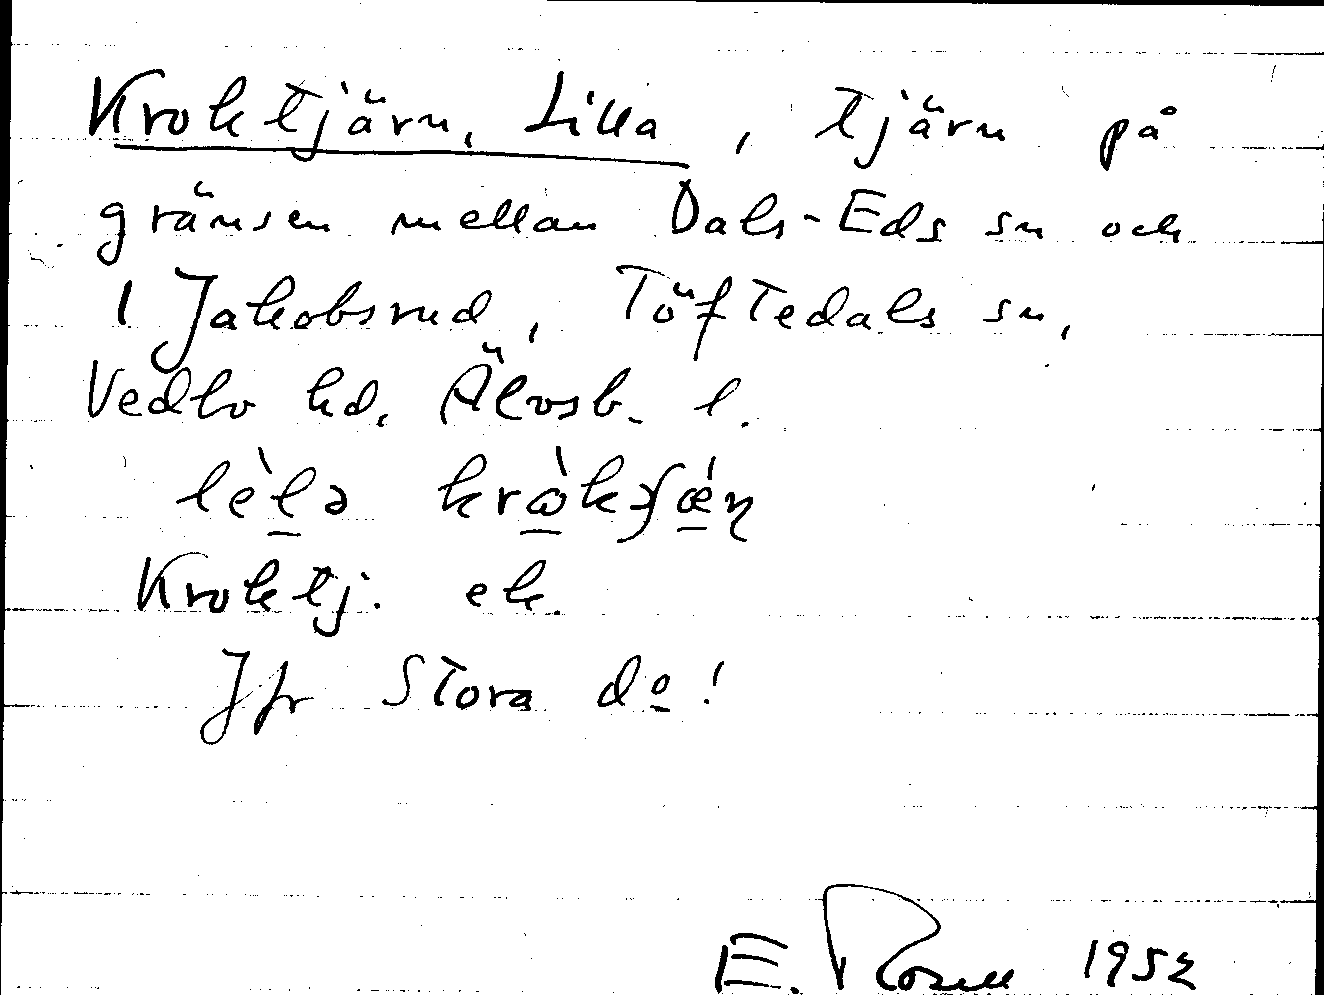 Kroktjärn, Lilla, tjärn på
gränsen mellan Dals-Eds sn och
1 Jakobsrud, Töftedals sn,
Vedbo hd, Älvsb. l.
Kroktj. ek.
Jfr Stora do!
E. Rosell 1952